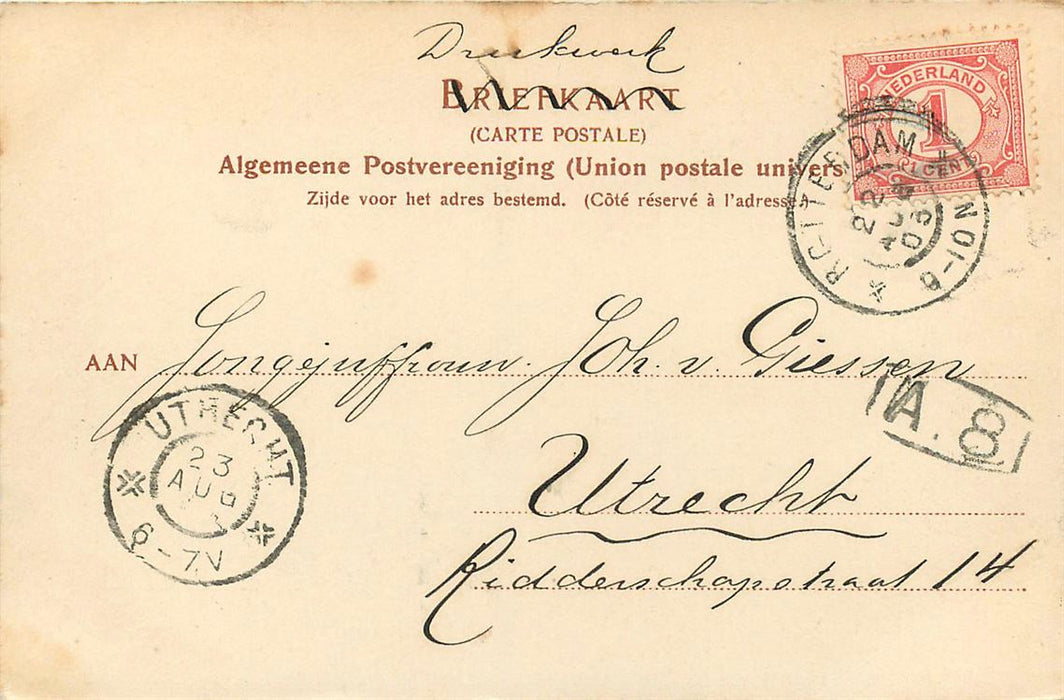 Drukwerk
BRIEFKAART
(CARTE POSTALE)
Algemeene Postvereeniging (Union postale univers
Zijde voor het adres bestemd. (Côté réservé à l'adresse
NEDERLAND
1
CENT
ROTTERDAM
22
AUG
03
9-10N
AAN Jongejuffrouw Joh. v. Giessen
A. 8
UTRECHT
23
AUG
3
6-7V
Utrecht
Ridderschapstraat 14